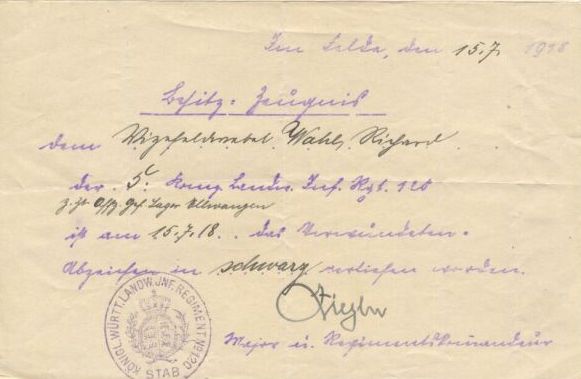 Im Felde, den 15.7. 1918
Besitz-Zeugnis
dem Vizefeldwebel Wahl, Richard
der 5. Komp. Landw. Inf. Rgt. 120
z. Zt. Offz. Gef. Lager Ellwangen
ist am 15.7.18. das Verwundeten-
Abzeichen in schwarz verliehen worden.
Ziegler
Major u. Regimentskommandeur
KÖNIGL. WÜRTT. LANDW. JNF. REGIMENT. Nº 120
STAB